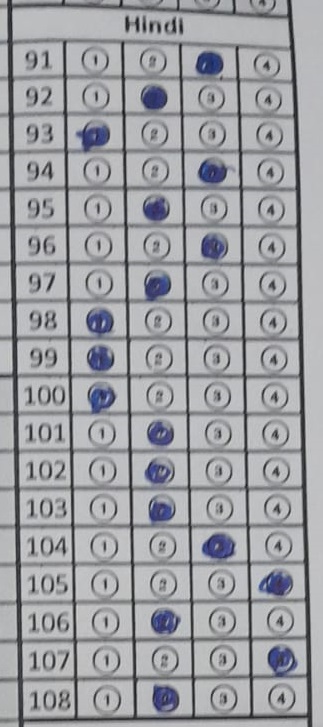 Hindi
91 1 2 3 4
92 1 3 4
93 2 3 4
94 1 2 4
95 1 3 4
96 1 2 4
97 1 3 4
98 2 3 4
99 2 3 4
100 2 3 4
101 1 3 4
102 1 3 4
103 1 3 4
104 1 2 4
105 1 2 3
106 1 3 4
107 1 2 3
108 1 3 4